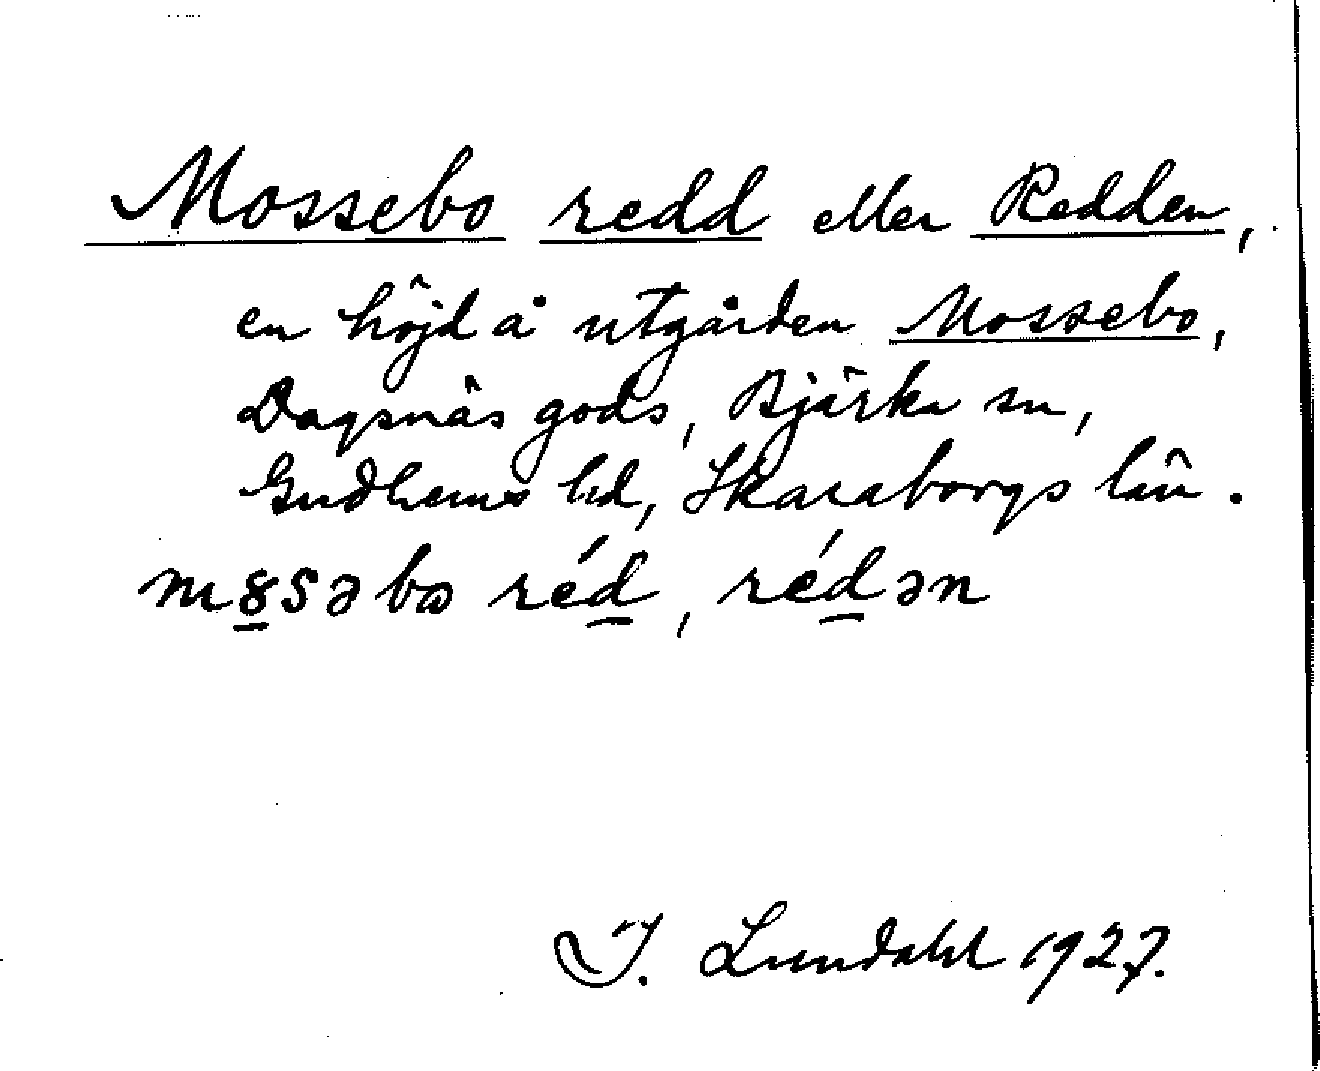 Mossebo redd eller Redden,
en höjd å utgården Mossebo,
Dagsnäs gods, Bjärka sn,
Gudhems hd, Skaraborgs län.
m8səbɷ réd, rédən
I. Lundahl 1927.